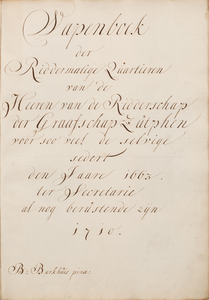 Wapenboek
der
Riddermatige Quartieren
van de
Heeren van de Ridderschap
der Graafschap Zutphen
voor soo veel de selvige
sedert
den Jaare 1663
ter Secretarie
al nog berustende zyn
1710.